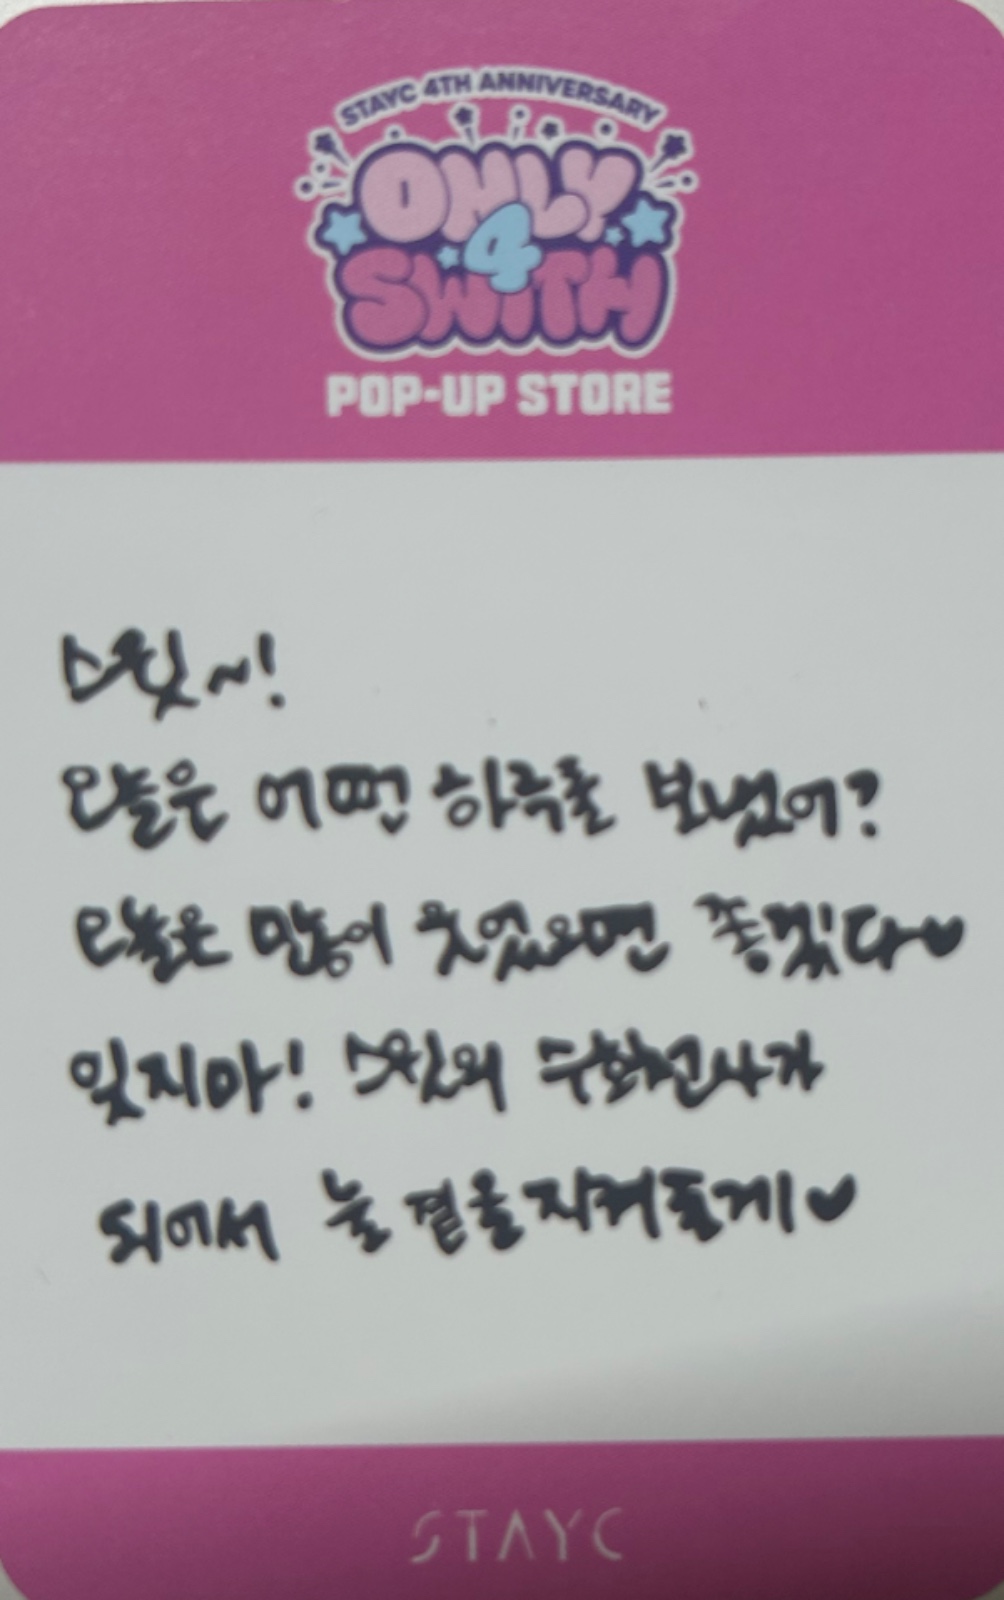 STAYC 4TH ANNIVERSARY
ONLY
4
SWITH
POP-UP STORE
스윗~!
오늘은 어떤 하루를 보냈어?
오늘은 많이 웃었으면 좋겠다♥
잊지마! 스윗의 수호천사가
되어서 늘 곁을 지켜줄게♥
STAYC